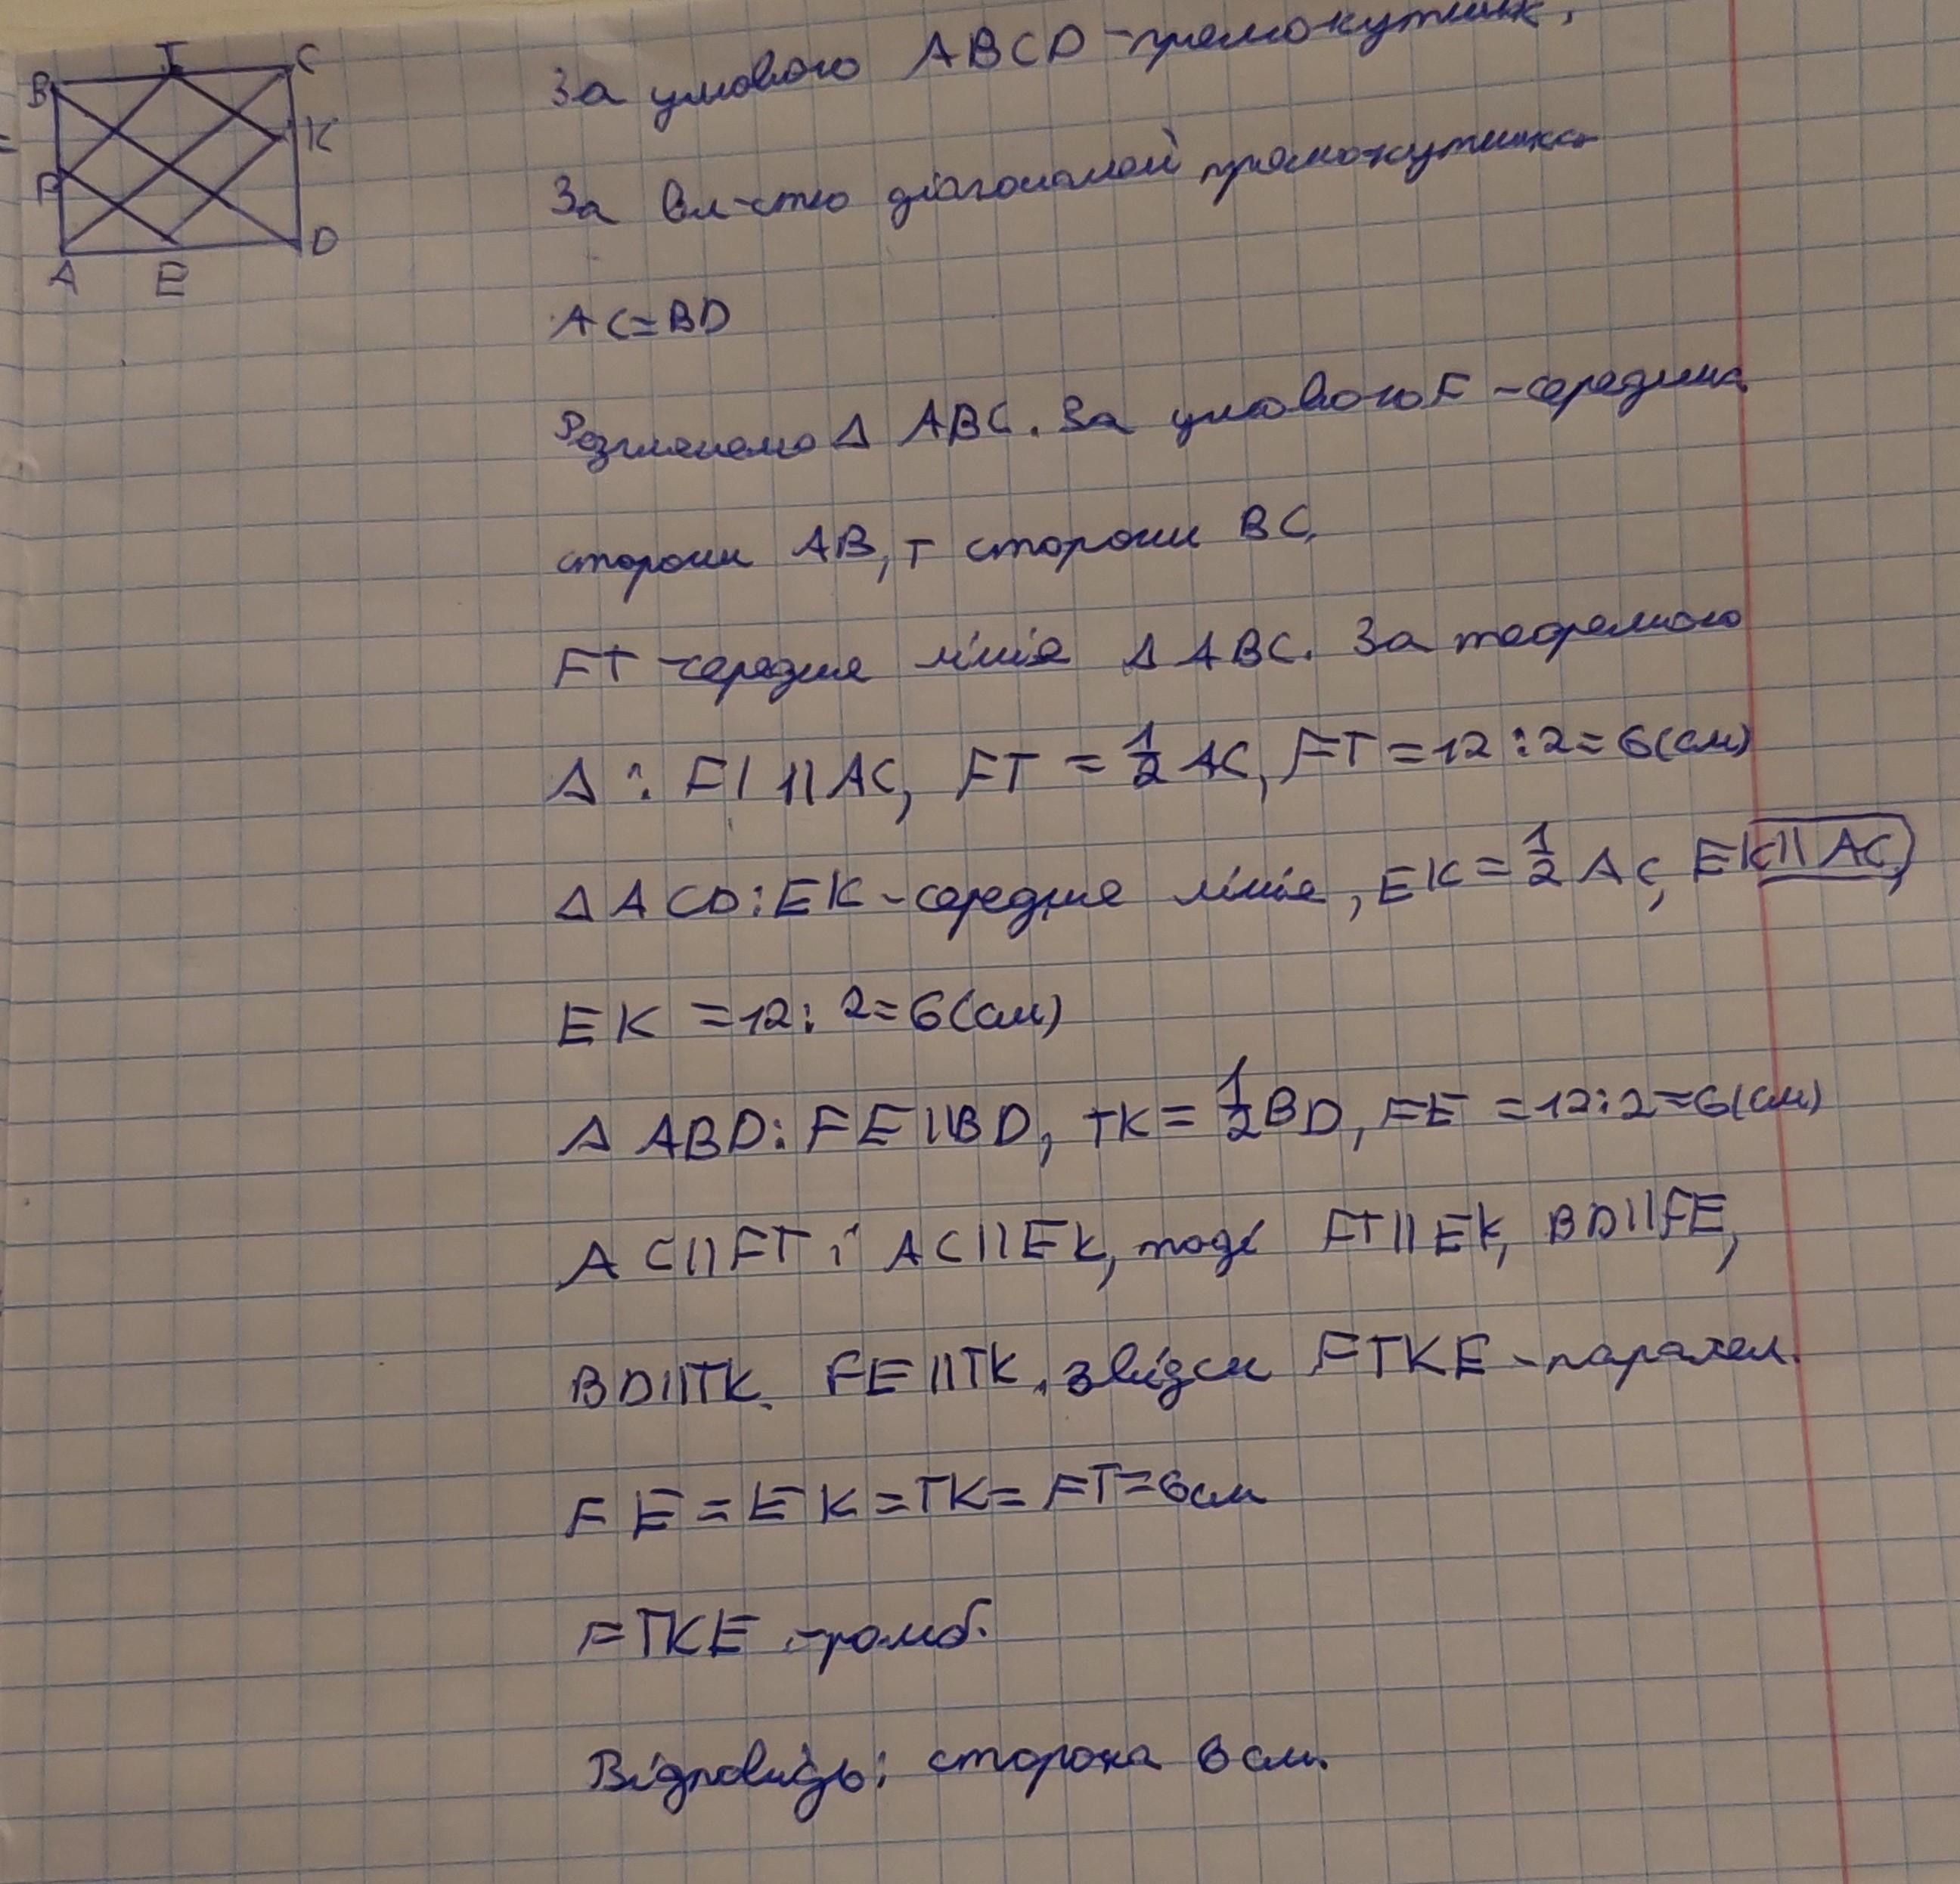 B T C
K
F
A E D
За умовою ABCD - прямокутник,
За вл-стю діагоналей прямокутника
AC=BD
Розглянемо Δ ABC. За умовою F - середина
сторони AB, T сторони BC,
FT - середня лінія Δ ABC. За теоремою
Δ : FT || AC, FT = 1/2 AC, FT = 12 : 2 = 6(см)
Δ ACD: EK - середня лінія, EK = 1/2 AC, EK || AC,
EK = 12 : 2 = 6(см)
Δ ABD: FE || BD, TK = 1/2 BD, FE = 12:2=6(см)
AC || FT і AC || EK, тоді FT || EK, BD || FE,
BD || TK. FE || TK, звідси FTKE - паралел.
FE = EK = TK = FT = 6см
FTKE - ромб.
Відповідь: сторона 6 см.